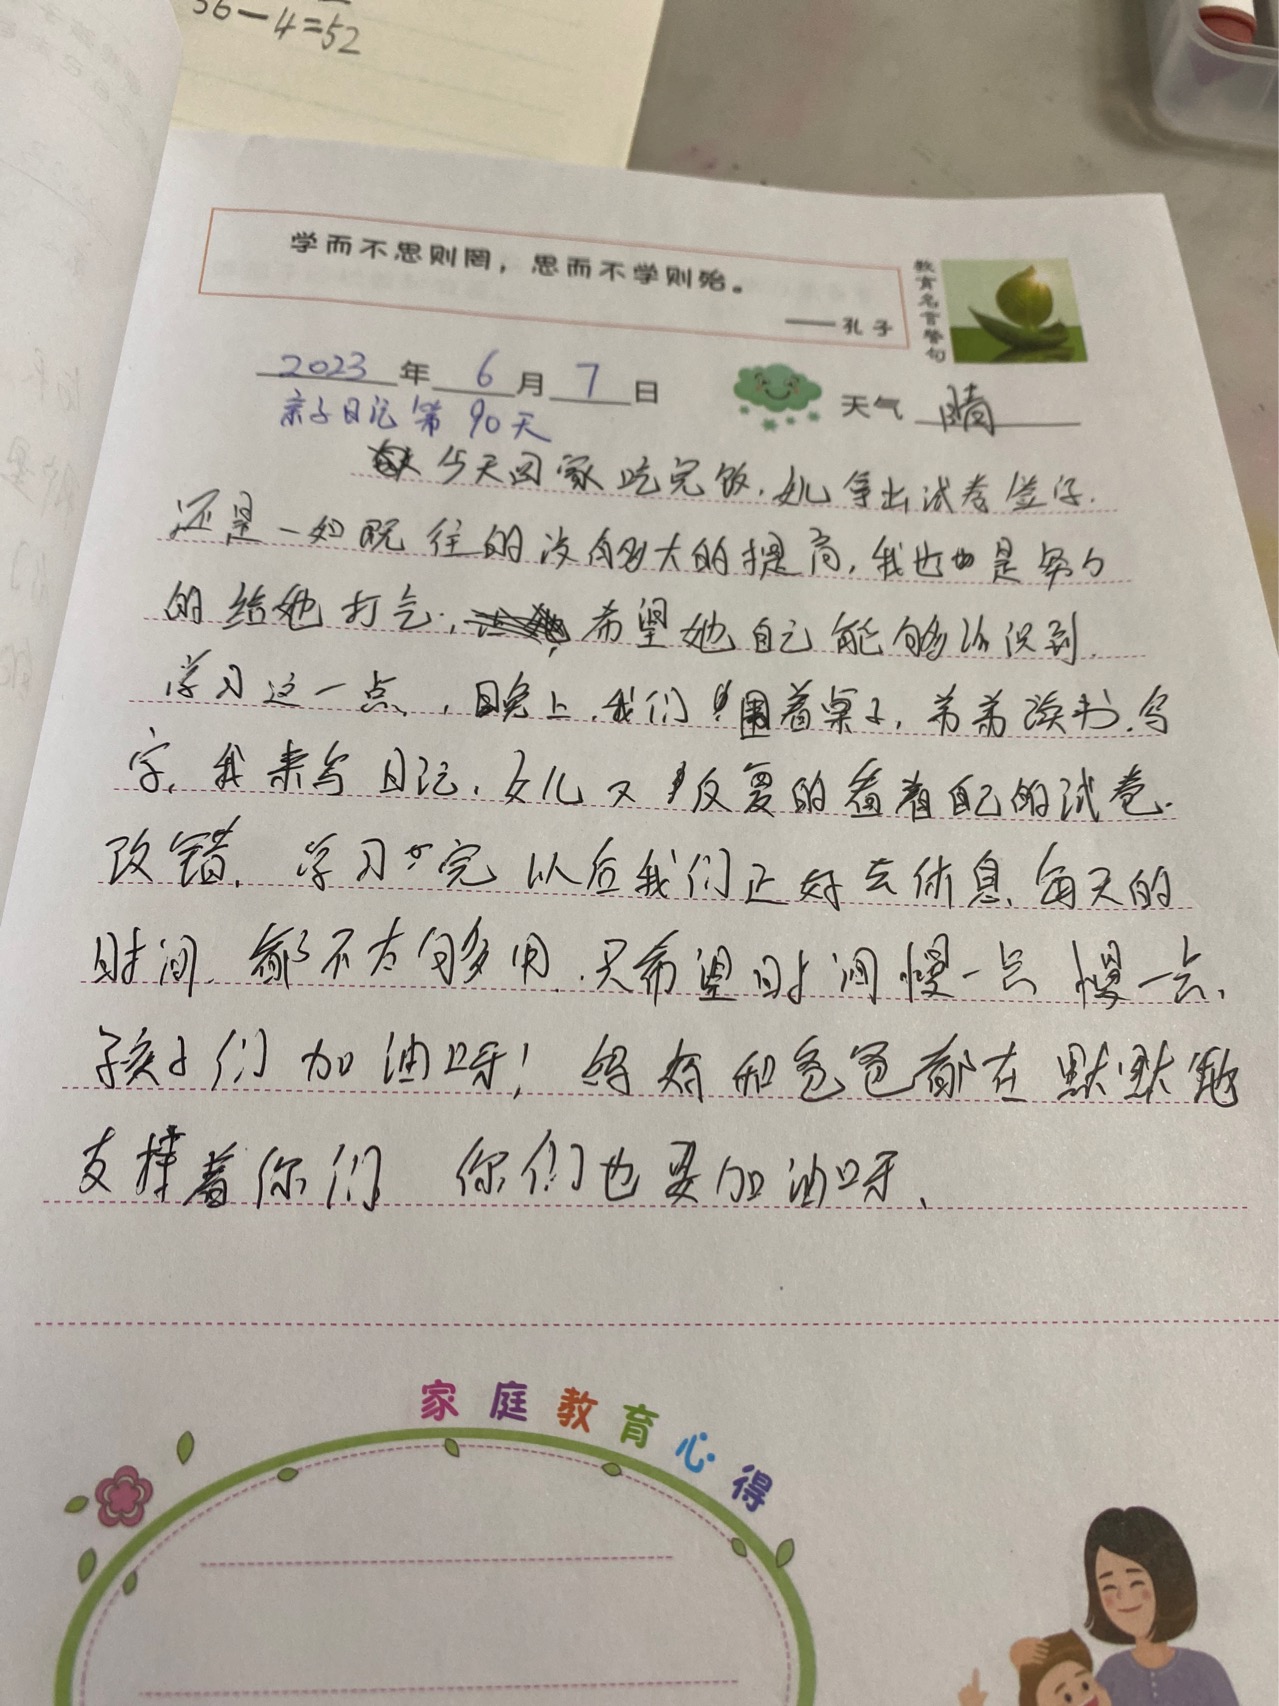 56-4=52
学而不思则罔，思而不学则殆。
——孔子
教育名言警句
2023年6月7日
天气 晴
亲子日记第90天
今天回家吃完饭，女儿拿出试卷签字.
还是一如既往的没有多大的提高，我也是努力
的给她打气，希望她自己能够认识到
学习这一点，晚上，我们围着桌子，弟弟读书，写
字，我来写日记，女儿又反复的看着自己的试卷.
改错，学习完以后我们正好去休息，每天的
时间，都不太够用，只希望时间慢一点 慢一点，
孩子们加油呀！妈妈和爸爸都在默默地
支撑着你们 你们也要加油呀、
家庭教育心得